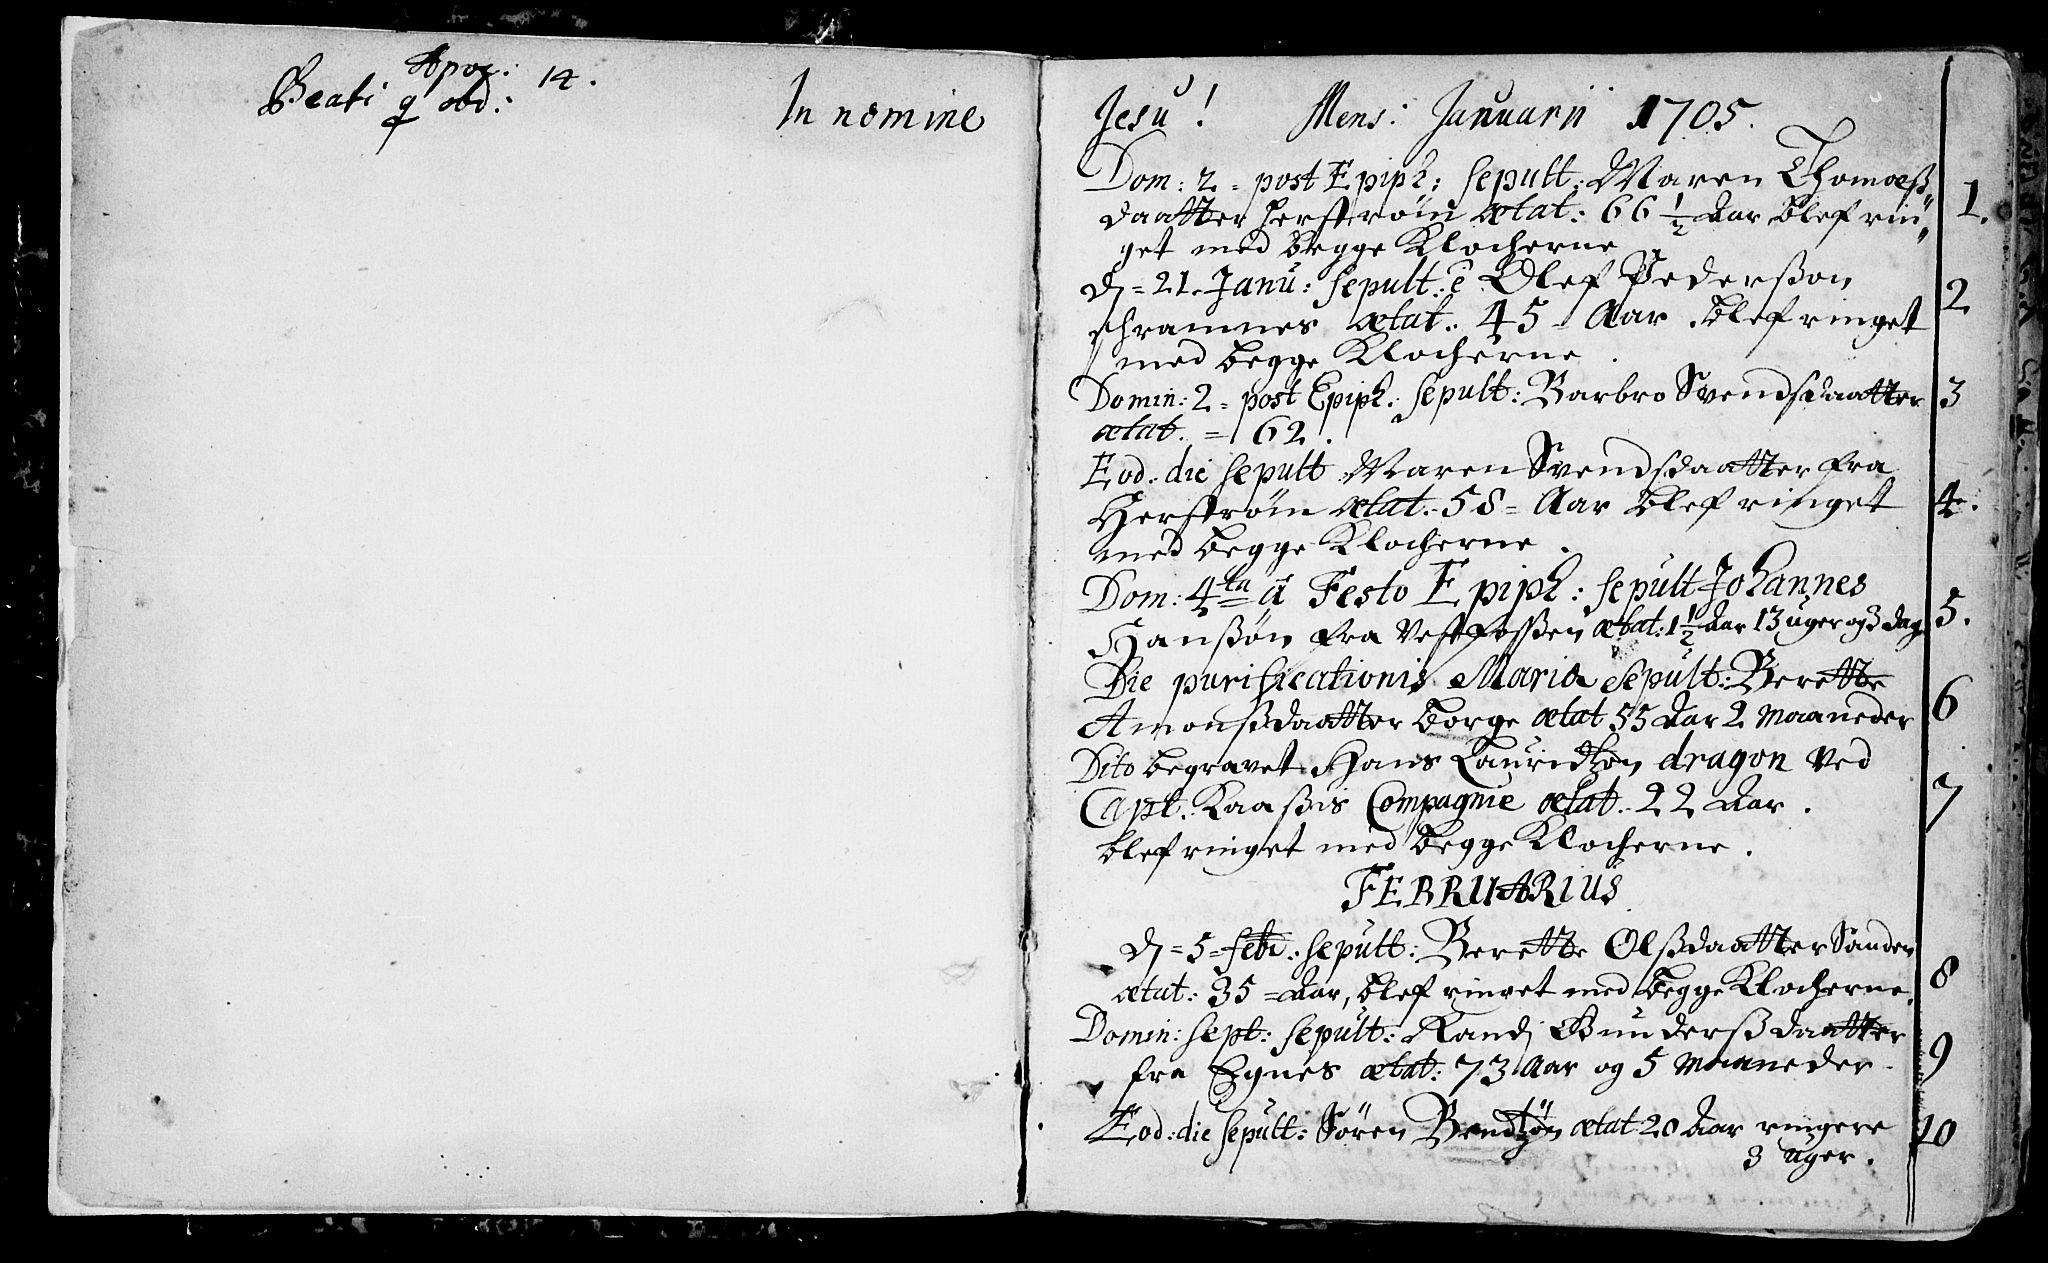 Apoc: 14.
Beati q obd:
In nomine
Jesu! Mens: Januarii 1705.
Dom: 2 = post Epiph: sepult: Maren Thomæß
daatter Herstrøm ætat: 66 1/2 Aar blef rin„
get med begge Klocherne
1.
d = 21. Janu: sepult: e Olef Pederßøn
Schramnes ætat. 45 = Aar. blef ringet
med begge Klocherne.
2
Domin: 2 = post Epiph: sepult: Barbro Svendsdaatter
ætat. = 62.
3
Eod. die sepult Maren Svendsdaatter fra
Herstrøm ætat. 58 = Aar blef ringet
med begge Klocherne.
4.
Dom: 4ta à Festo Epiph: sepult Johannes
Hanßøn fra Vestfossen ætat: 1 1/2 Aar 13 uger og 3 dag
5.
Die purificationis Maria sepult: Berette
Amonßdaatter Borge ætat 55 Aar 2 Maaneder
6
Dito begravet Hans Lauridtzøn dragon ved
Capt. Kaaßis Compagnie ætat. 22 Aar.
blef ringet med begge Klocherne.
7
FEBRUARIUS
d = 5 = febr: sepult: Berette Olßdaatter Sanden
ætat: 35 = Aar, blef ringet med begge Klocherne.
8
Domin: sept: sepult: Randj Gunderßdaatter
fra Egnes ætat: 73 Aar og 5 Maaneder.
9
Eod: die sepult: Sören Bendtzøn ætat 20 Aar ringere
3 uger.
10